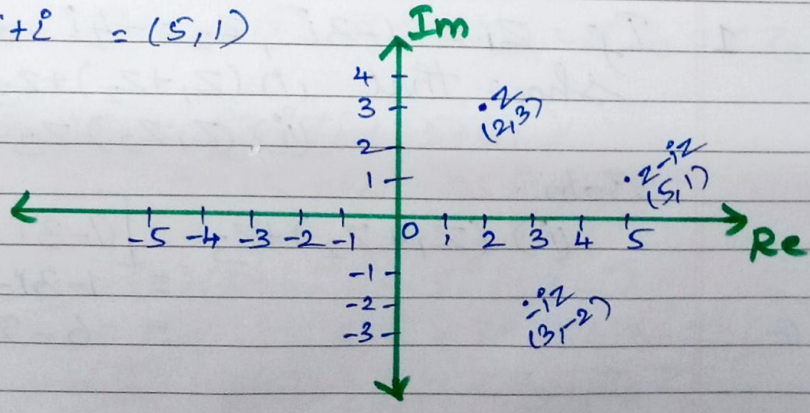 +i = (5,1)
Im
4
3
2
1
z
(2,3)
z-iz
(5,1)
-5 -4 -3 -2 -1 0 1 2 3 4 5
Re
-1
-2
-3
-iz
(3,-2)